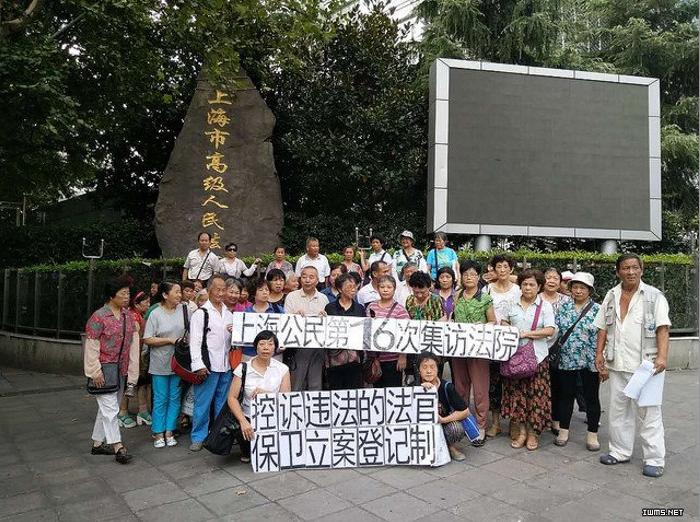 上海市高级人民法
上海公民第16次集访法院
控诉违法的法官
保卫立案登记制
IWMS.NET